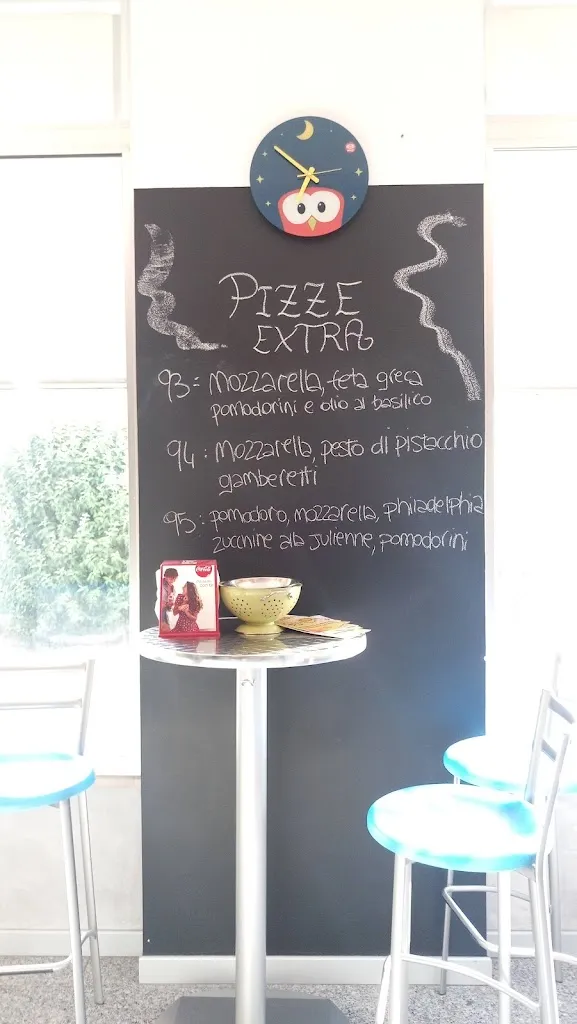 PIZZE
EXTRA
93: Mozzarella, feta greca
pomodorini e olio al basilico
94: Mozzarella, pesto di pistacchio
gamberetti
95: pomodoro, mozzarella, philadelphia
zucchine alla julienne, pomodorini
Coca-Cola